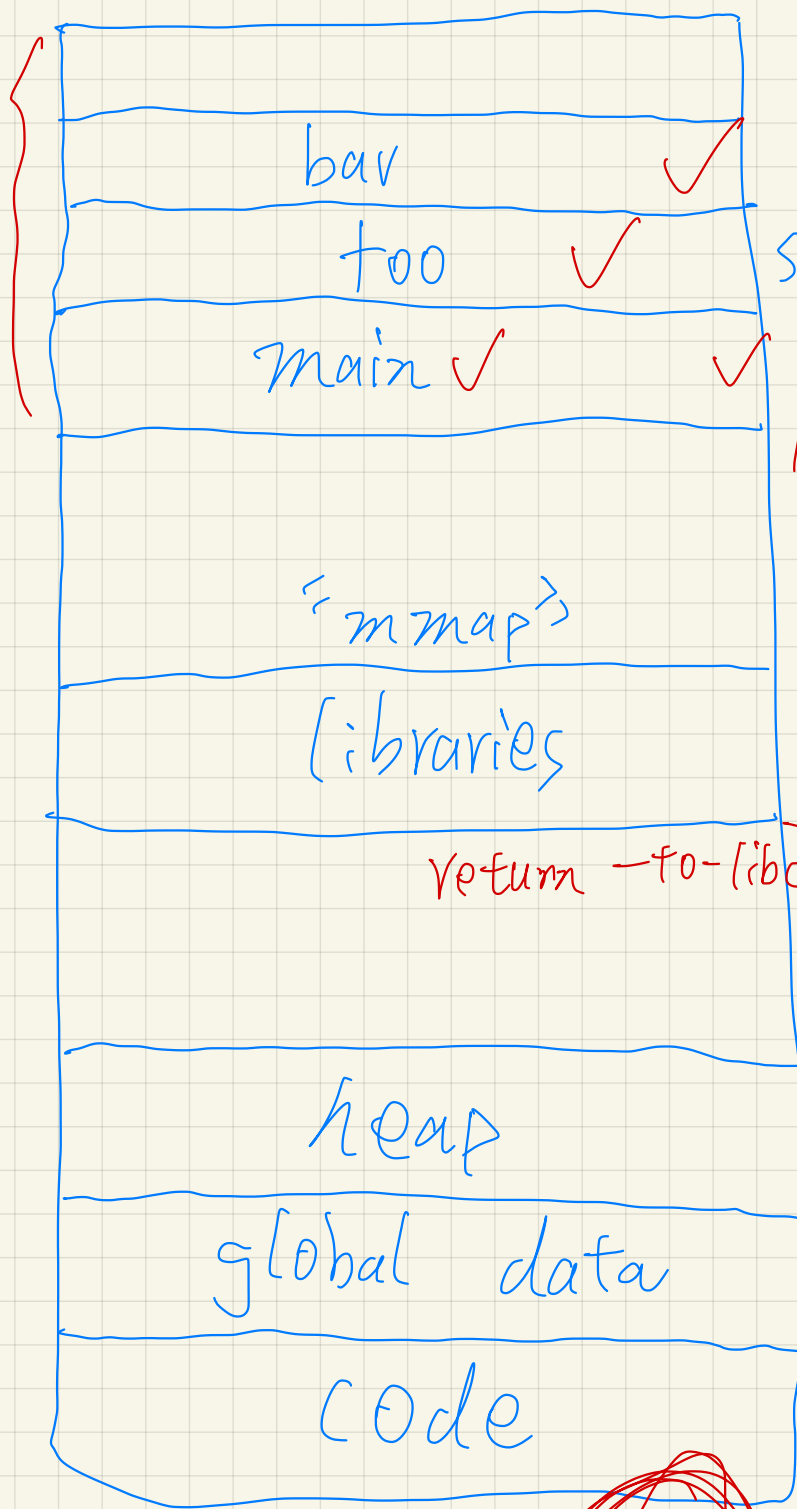 bar
foo
main
"mmap"
libraries
return-to-libc
heap
global data
code